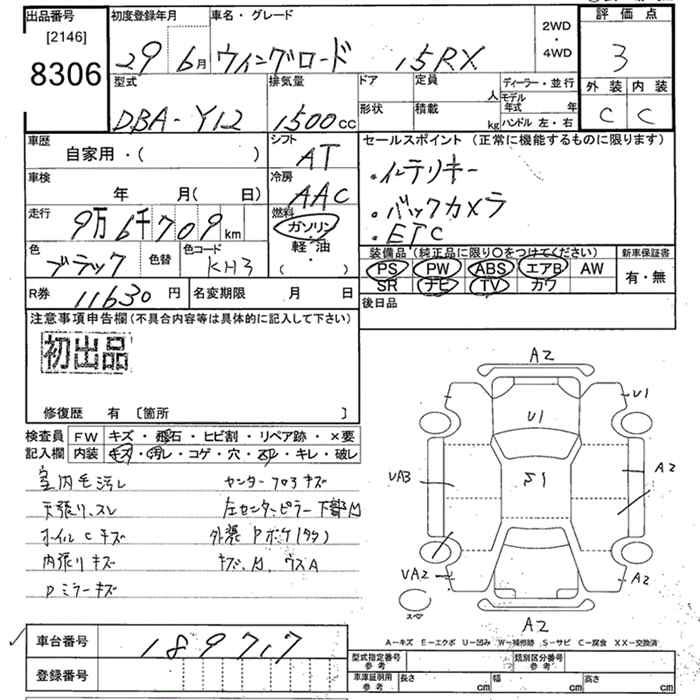 出品番号
[2146]
8306
初度登録年月
29年6月
車名・グレード
ウィングロード 15RX
2WD
・
4WD
評価点
3
外装 内装
C C
型式
DBA-Y12
排気量
1500cc
ドア
形状
定員
人
積載
kg
ディーラー・並行
モデル年式 年
ハンドル 左・右
車歴
自家用・( )
シフト
AT
車検
年 月( 日)
冷房
AAC
走行
9万6千709km
燃料
ガソリン
軽・油
( )
色
ブラック
色替
色コード
KH3
セールスポイント (正常に機能するものに限ります)
・インテリキー
・バックカメラ
・ETC
装備品(純正品に限り〇をつけてください)
PS PW ABS エアB AW
SR ナビ TV カワ
新車保証書
有・無
R券 11630円
名変期限 月 日
後日品
注意事項申告欄(不具合内容等は具体的に記入して下さい)
初出品
修復歴 有 〔箇所 〕
検査員
記入欄
FW キズ・飛石・ヒビ割・リペア跡・×要
内装 キズ・汚レ・コゲ・穴・スレ・キレ・破レ
室内毛汚レ センターフロアキズ
天張り、スレ 左センターピラー下部M
ホイルCキズ
内張りキズ キズ、M、ウスA
Pミラーキズ
A2
U1
U1
UA3
S1
A2
UA2
A2
スペア
A2
A-キズ E-エクボ U-凹み W-補修跡 S-サビ C-腐食 XX-交換済
車台番号
189717
登録番号
型式指定番号
参考
類別区分番号
参考
車庫証明用
参考
長さ cm 幅 cm 高さ cm